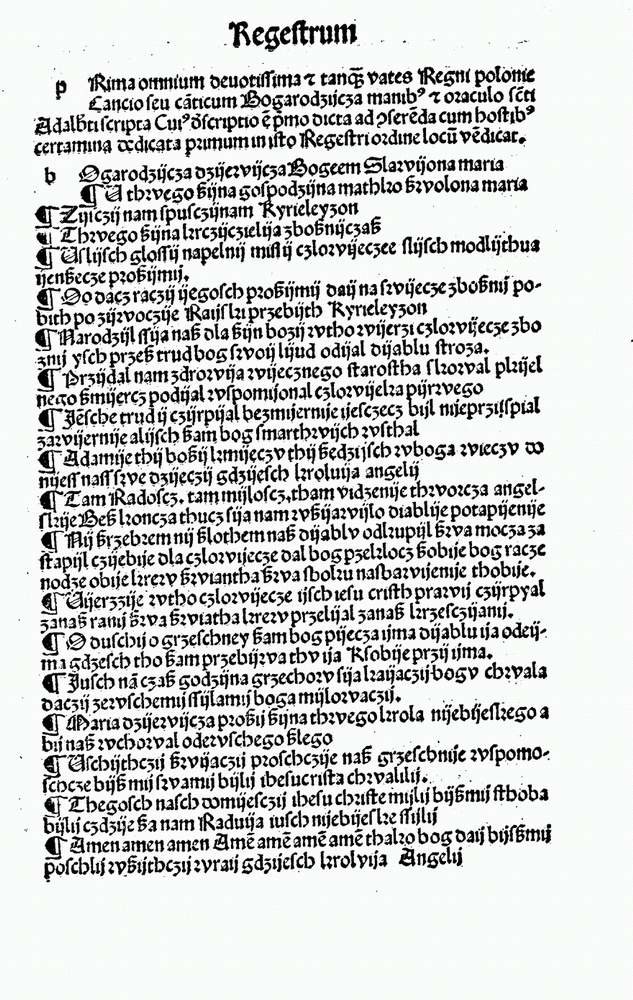 Regestrum
p Rima omnium devotissima ⁊ tanqȝ vates Regni polonie
Cancio seu cāticum Bogarodzijcza manibꝰ ⁊ oraculo sēti
Adalbti scripta Cuiꝰ dscriptio ē pmo dicta ad ꝯserēda cum hostibꝰ
certamina dedicata primum in isto Regestri ordine locū vēdicat.
b Ogarodzijcza dzijervijcza Bogeem Slarvijona maria
¶ U thrvego ßijna gospodzijna mathko ßrvolona maria
¶ Zijſczij nam spusczijnam Kyrieleyzon
¶ Thrvego ßijna krczijczielija zboßnijczaß
¶ Uslijsch glossij napelnij mislij czlorvijeczee slijsch modlijthua
ijenßecze proßijmij.
¶ Oo dacz raczij ijegosch proßijmij daij na srvijecze zboßnij po-
bith po zijrvoczije Raijski przebijth Kyrieleyzon
¶ Narodzijl ssija naß dla ßijn bozij rvtho rvijerzi czlorvijecze zbo
znij ysch przeß trud bog srvoij lijud odijal dijablu stroza.
¶ Przijdal nam zdrorvija rvijecznego starostha skorval pkijel
nego ßmijercz podijal rvspomijonal czlorvijeka pijrrvego
¶ Jēsche trud ij czijrpijal bezmijernije ijesczecz bijl nijeprzijspial
zarvijernije alijsch ßam bog smarthrvijch rvsthal
¶ Adamije thij boßij kmijeczv thij ßedzijsch rvboga rvieczv do
nijess nass srve dzijeczij gdzijesch kroluija angelij
¶ Tam Radoscz. tam mijloscz. tham vidzenije thrvorcza angel-
skije Beß koncza thucz sija nam rvßijarvijlo diablije potapijenije
¶ Nij ßrzebrem nij ßlothem naß dijablv odkupijl ßrva mocza za
stapijl czijebije dla czlorvijecze dal bog pzekkocz ßobije bog racze
nodze obije krerv ßrviantha ßrva sboku nasbarvijenije thobije.
¶ Uijerzzije rvtho czlorvijecze ijsch iesu cristh prarvij czijrpyal
zanaß ranij ßrva ßrviatha krerv przelijal zanaß krzesczijanij.
¶ O duschij o grzeschney ßam bog pijecza ijma dijablu ija odeij-
ma gdzesch tho ßam przebijrva thv ija Ksobije przij ijma.
¶ Jusch nā czaß godzijna grzechorv sija kaijaczij bogv chrvala
daczij zervschemij ssijlamij boga mijlorvaczij.
¶ Maria dzijervijcza proßij ßijna thrvego krola nijebijeskego a
bij naß rvchorval odervschego ßlego
¶ Uschijthczij ßrvijaczij proschczije naß grzeschnije rvspomo-
schcze bijß mij srvamij bijlij ihesucrista chrvalilij.
¶ Thegosch nasch domijesczij ihesu christe mijlij bijßmij sthoba
bijlij czdzije ßa nam Raduija iusch nijebijeske ssijlij
¶ Amen amen amen Amē amē amē amē thalko bog daij bijsßmij
poschlij rvßijthczij rvraij gdzijesch krolvija Angelij